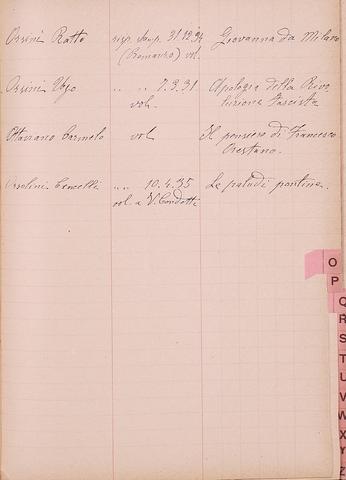 Orsini Ratto risp. Amp. 31.12.34 Giovanna da Milano
(Romanzo) vol.
Orsini Ugo " " 7.3.31 Apologia della Rivo-
vol. luzione Fascista
Ottaviano Carmelo vol. Il pensiero di Francesco
Orestano.
Orsolini Cencelli " " 10.4.35 Le paludi pontine.
vol. a V. Condotti
O
P
Q
R
S
T
U
V
W
X
Y
Z